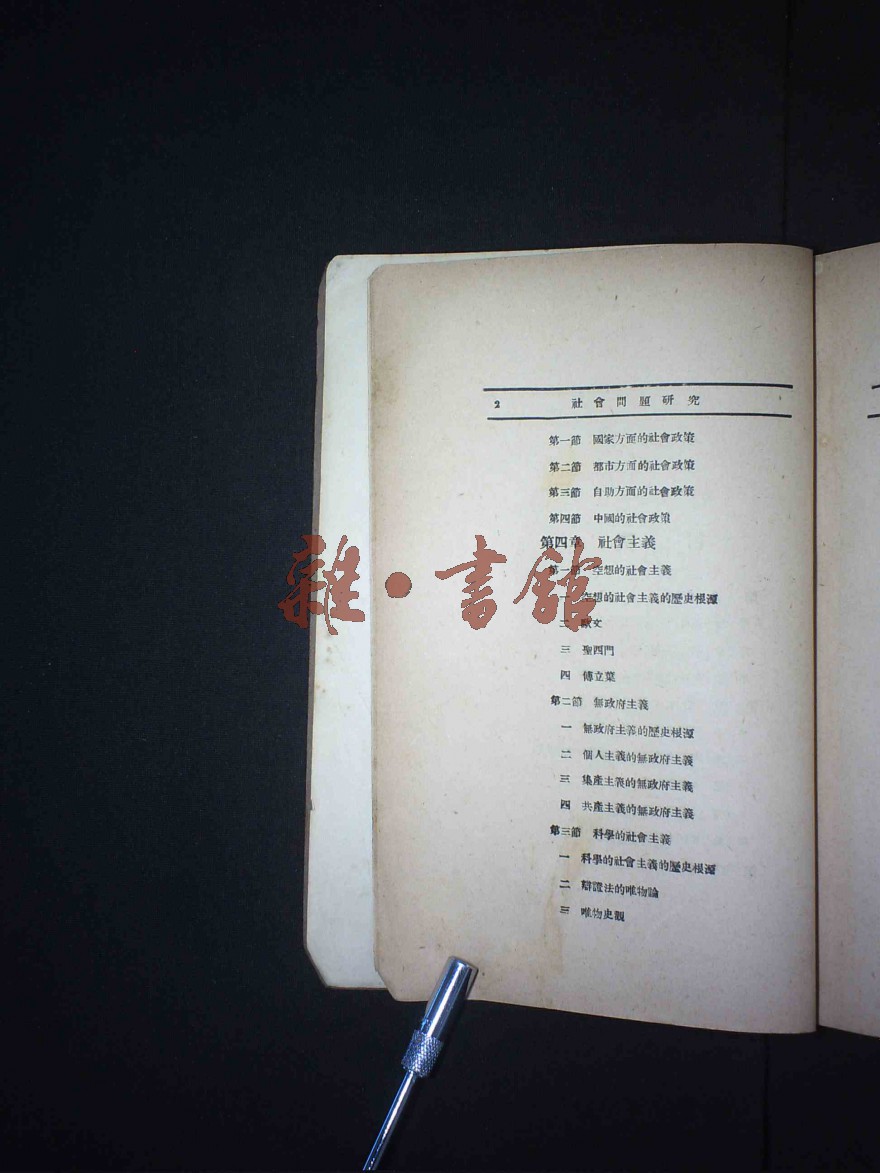 2 社會問題研究
第一節 國家方面的社會政策
第二節 都市方面的社會政策
第三節 自助方面的社會政策
第四節 中國的社會政策
第四章 社會主義
第一節 空想的社會主義
一 空想的社會主義的歷史根源
二 歐文
三 聖西門
四 傅立葉
第二節 無政府主義
一 無政府主義的歷史根源
二 個人主義的無政府主義
三 集產主義的無政府主義
四 共產主義的無政府主義
第三節 科學的社會主義
一 科學的社會主義的歷史根源
二 辯證法的唯物論
三 唯物史觀
雜·書館